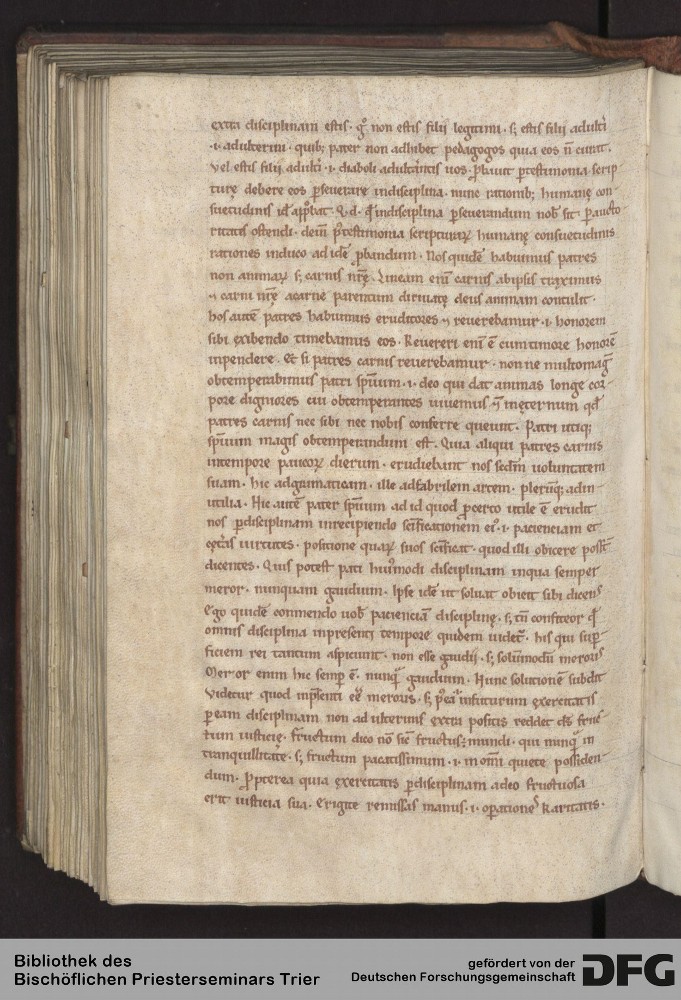 extra disciplinam estis · gͦ non estis filii legitimi · s; estis filii adult̄i
·i· adulterini · quib; pater non adhibet pedagogos quia eos n̄ curat ·
vel estis filii adult̄i ·i· diaboli adult̄antis uos · ꝓbauit ꝑ testimonia scrip
turę debere eos ꝑseuerare indisciplina · nunc rationib; humanę con-
suetudinis idē app̄bat · Q · d · q̄ indisciplina ꝑseuerandum nob̄ sit ꝑ aucto-
ritatē ostendi · dein p̄ testimonia scripturaꝝ humanę consuetudinis
rationes induco ad idē ꝓbandum · Nos quidē habuimus patres
non animaꝝ s; carnis nrē · Lineam eni carnis abipsis traximus
⁊ carni nrē acarne parentum diriuatę deus animam contulit ·
hos autē patres habuimus eruditores ⁊ reuerebamur ·i· honorem
sibi exibendo timebamus eos · Reuereri eni ē cum timore honorē
inpendere · Et si patres carnis reuerebamur · non ne multomag̅
obtemperabimus patri spīuum ·i· deo qui dat animas longe cor-
pore digniores cui obtemperantes uiuemus ⁊ inęternum qd̄
patres carnis nec sibi nec nobis conferre queunt · Patri utiq;
spīuum magis obtemperandum est · Quia aliqui patres carnis
intempore paucoꝝ dierum · erudiebant nos secdm̄ uoluntatem
suam · hic adgrāmaticam · ille adfabrilem artem · pleriq; ad in-
utilia · Hic autē pater spīuum ad id quod ꝓcerto utile ē erudit
nos ꝑdisciplinam inrecipiendo scīficationem ei᷒ ·i· pacienciam et
cęt̄as uirtutes · positione quaꝝ suos scīficat · quod illi obicere poss̄t
dicentes · Quis potest pati hui᷒modi disciplinam inqua semper
meror · nunquam gaudium · Ipse idē ut soluat obicit sibi dicens
Ego quidē conmendo uob̄ pacienciā disciplinę · s; tn̄ confiteor q̄
omnis disciplina inpresenti tempore quidem uidet᷑ · his qui sup̄-
ficiem rei tantum aspiciunt · non esse gaudii · s; solūmodū meroris
Meror enim hic semp̄ ē · nunq̄ gaudium · Hunc solutionē subdit
Videtur quod inp̄senti eē meroris · s; p᷒ea infuturum exercitatis
ꝑ eam disciplinam non ad ulterius extra positis reddet d̄s fruc-
tum iusticię · fructum dico nō sic̄ fructus mundi · qui nunq̄ in
tranquillitate · s; fructum pacatissimum ·i· in om̄i quiete possiden-
dum · Ꝓpterea quia exercitatis ꝑdisciplinam adeo fructuosa
erit iusticia sua · Erigite remissas manus ·i· oꝑationes karitatis ·
Bibliothek des
Bischöflichen Priesterseminars Trier
gefördert von der
Deutschen Forschungsgemeinschaft
DFG